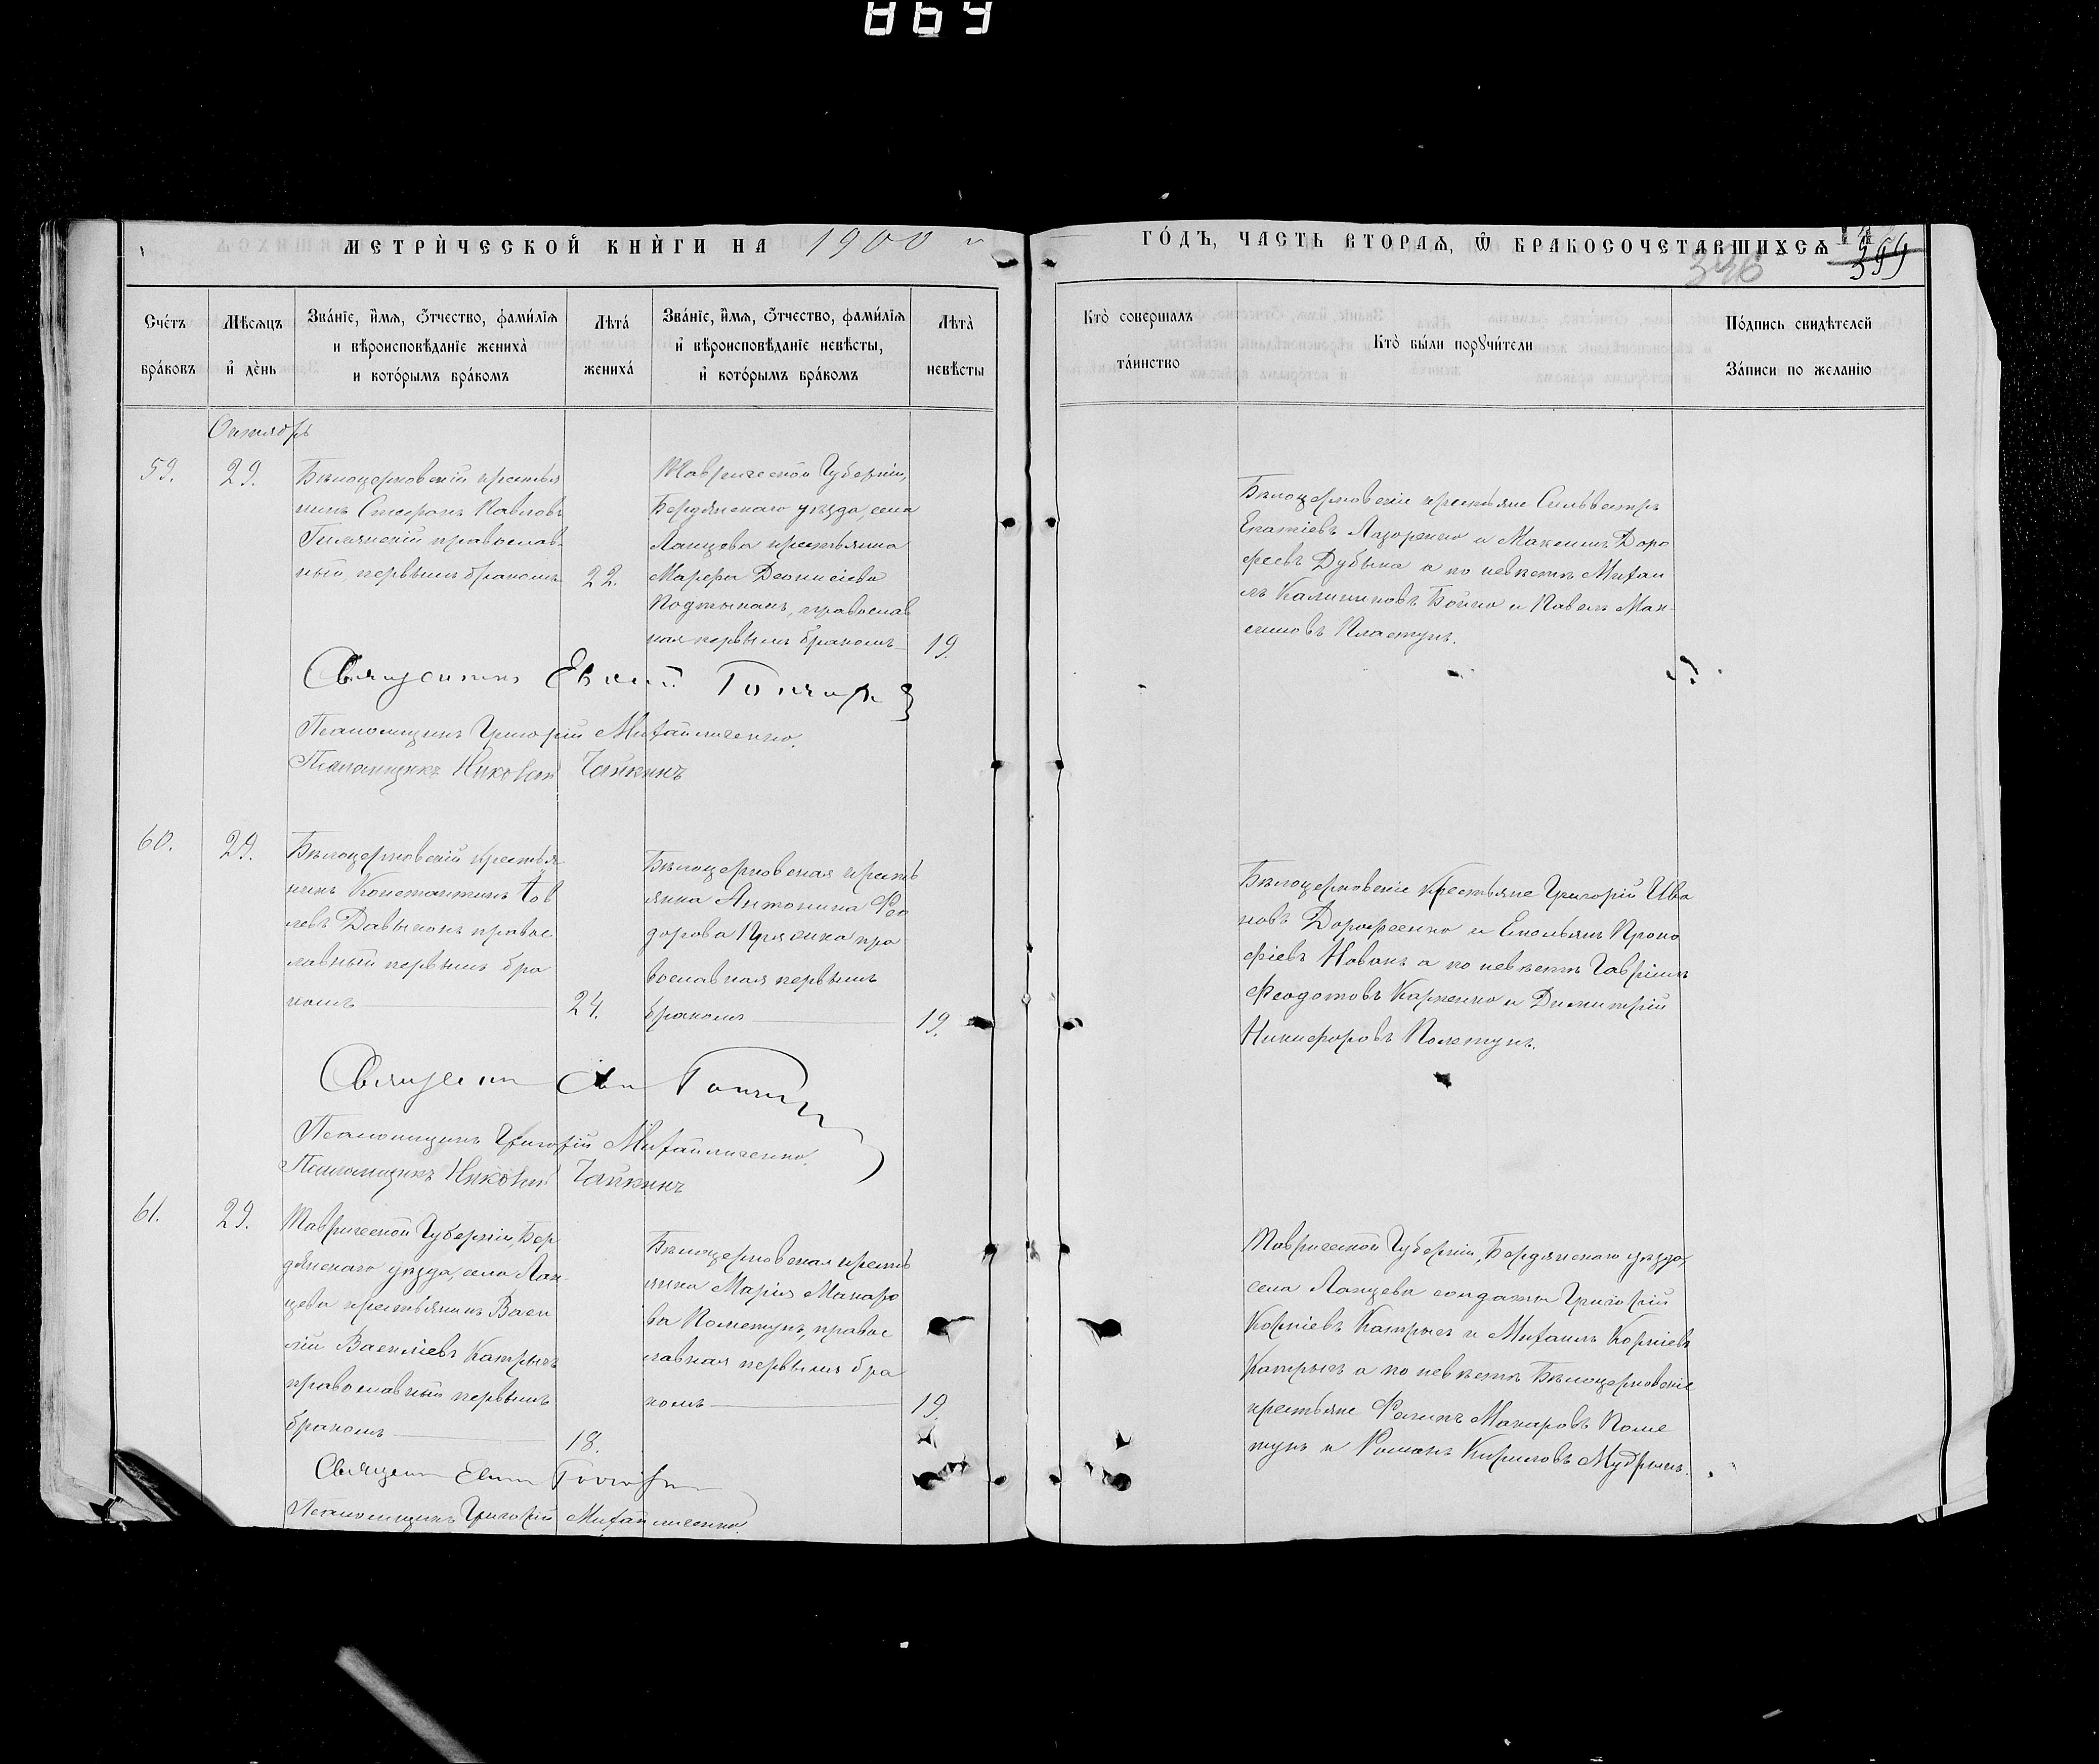 869
МЕТРИ́ЧЕСКОЙ КНИ́ГИ НА 1900
ГО́ДЪ, ЧАСТЬ ВТОРАѦ, Ѿ БРАКОСОЧЕТАВШИХСѦ
336
Сче́тъ бра́ковъ
Мѣ́сѧцъ и҆ де́нь
Зва́нїе, и҆́мѧ, ѻ҆́тчество, фами́лїѧ
и вѣроисповѣ́данїе жениха̀
и кото́рымъ бра́комъ
Лѣта̀ жениха́
Зва́нїе, и҆́мѧ, ѻ҆́тчество, фами́лїѧ
и҆ вѣроисповѣ́данїе невѣ́сты,
и҆ кото́рымъ бра́комъ
Лѣта̀ невѣ́сты
Кто̀ соверша́лъ
та́инство
Кто̀ бы́ли порꙋчи́тели
По́дпись свидѣ́телей
За́писи по жела́нїю
Октябрь
59.
29.
Бѣлоцерковскій крестья
нинъ Стефанъ Павловъ
православ-
ный, первымъ бракомъ
22.
Таврической Губерніи,
Бердянскаго уѣзда, села
Ланцева крестьянка
Марфа Деонисіева
православ
ная первымъ бракомъ
19.
Бѣлоцерковскіе крестьяне Сильвестръ
Игнатіевъ Лазоренко и Максимъ Доро
феевъ Дубына а по невѣстѣ Михаи
лъ Калиниковъ Бойко и Павелъ Мак-
симовъ Пластунъ.
Священникъ
Псаломщикъ Григорій Михайличенко.
Псаломщикъ Николай Чайкинъ
60.
29.
Бѣлоцерковскій крестья
нинъ Константинъ Іов
левъ правос
лавный первымъ бра
комъ
24.
Бѣлоцерковская кресть
янка Антонина Фео
дорова пра
вославная первымъ
бракомъ
19.
Бѣлоцерковскіе крестьяне Григорій Ива
новъ Дорофеенко и Емельянъ Проко
фіевъ Новакъ а по невѣстѣ Гавріилъ
Феодотовъ Карпенко и Димитрій
Никифоровъ Полетунъ.
Священникъ
Псаломщикъ Григорій Михайличенко.
Псаломщикъ Николай Чайкинъ
61.
29.
Таврической Губерніи, Бер
дянскаго уѣзда, села Лан-
цева крестьянинъ Васи
лій Васильевъ Катрычъ
православный первымъ
бракомъ
18.
Бѣлоцерковская кресть
янка Марія Макаро
ва Пометунъ, правос
лавная первымъ бра
комъ
19.
Таврической Губерніи, Бердянскаго уѣзда,
села Ланцева солдаты Григорій
Корніевъ Катрычъ и Михаилъ Корніевъ
Катрычъ а по невѣстѣ Бѣлоцерковскіе
крестьяне Филипъ Макаровъ Поме
тунъ и Романъ Кириловъ Мудрыкъ.
Священникъ
Псаломщикъ Григорій Михайличенко.